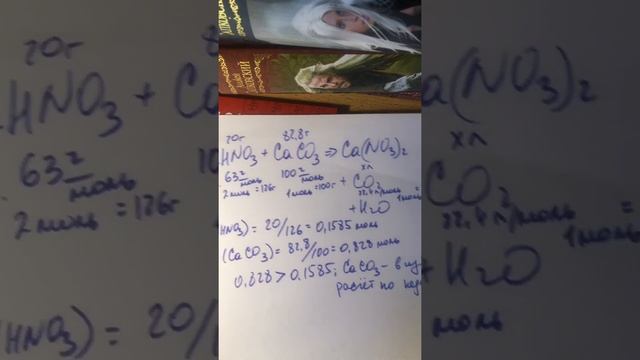 20г 82,8г
HNO3 + CaCO3 => Ca(NO3)2
63 г/моль 100 г/моль хл
+ CO2
2 моль = 126г 1 моль = 100г 22,4 л/моль
1 моль =
+ H2O
HNO3) = 20/126 = 0,1585 моль
(CaCO3) = 82,8/100 = 0,828 моль
0,828 > 0,1585; CaCO3 - в
расчёт по